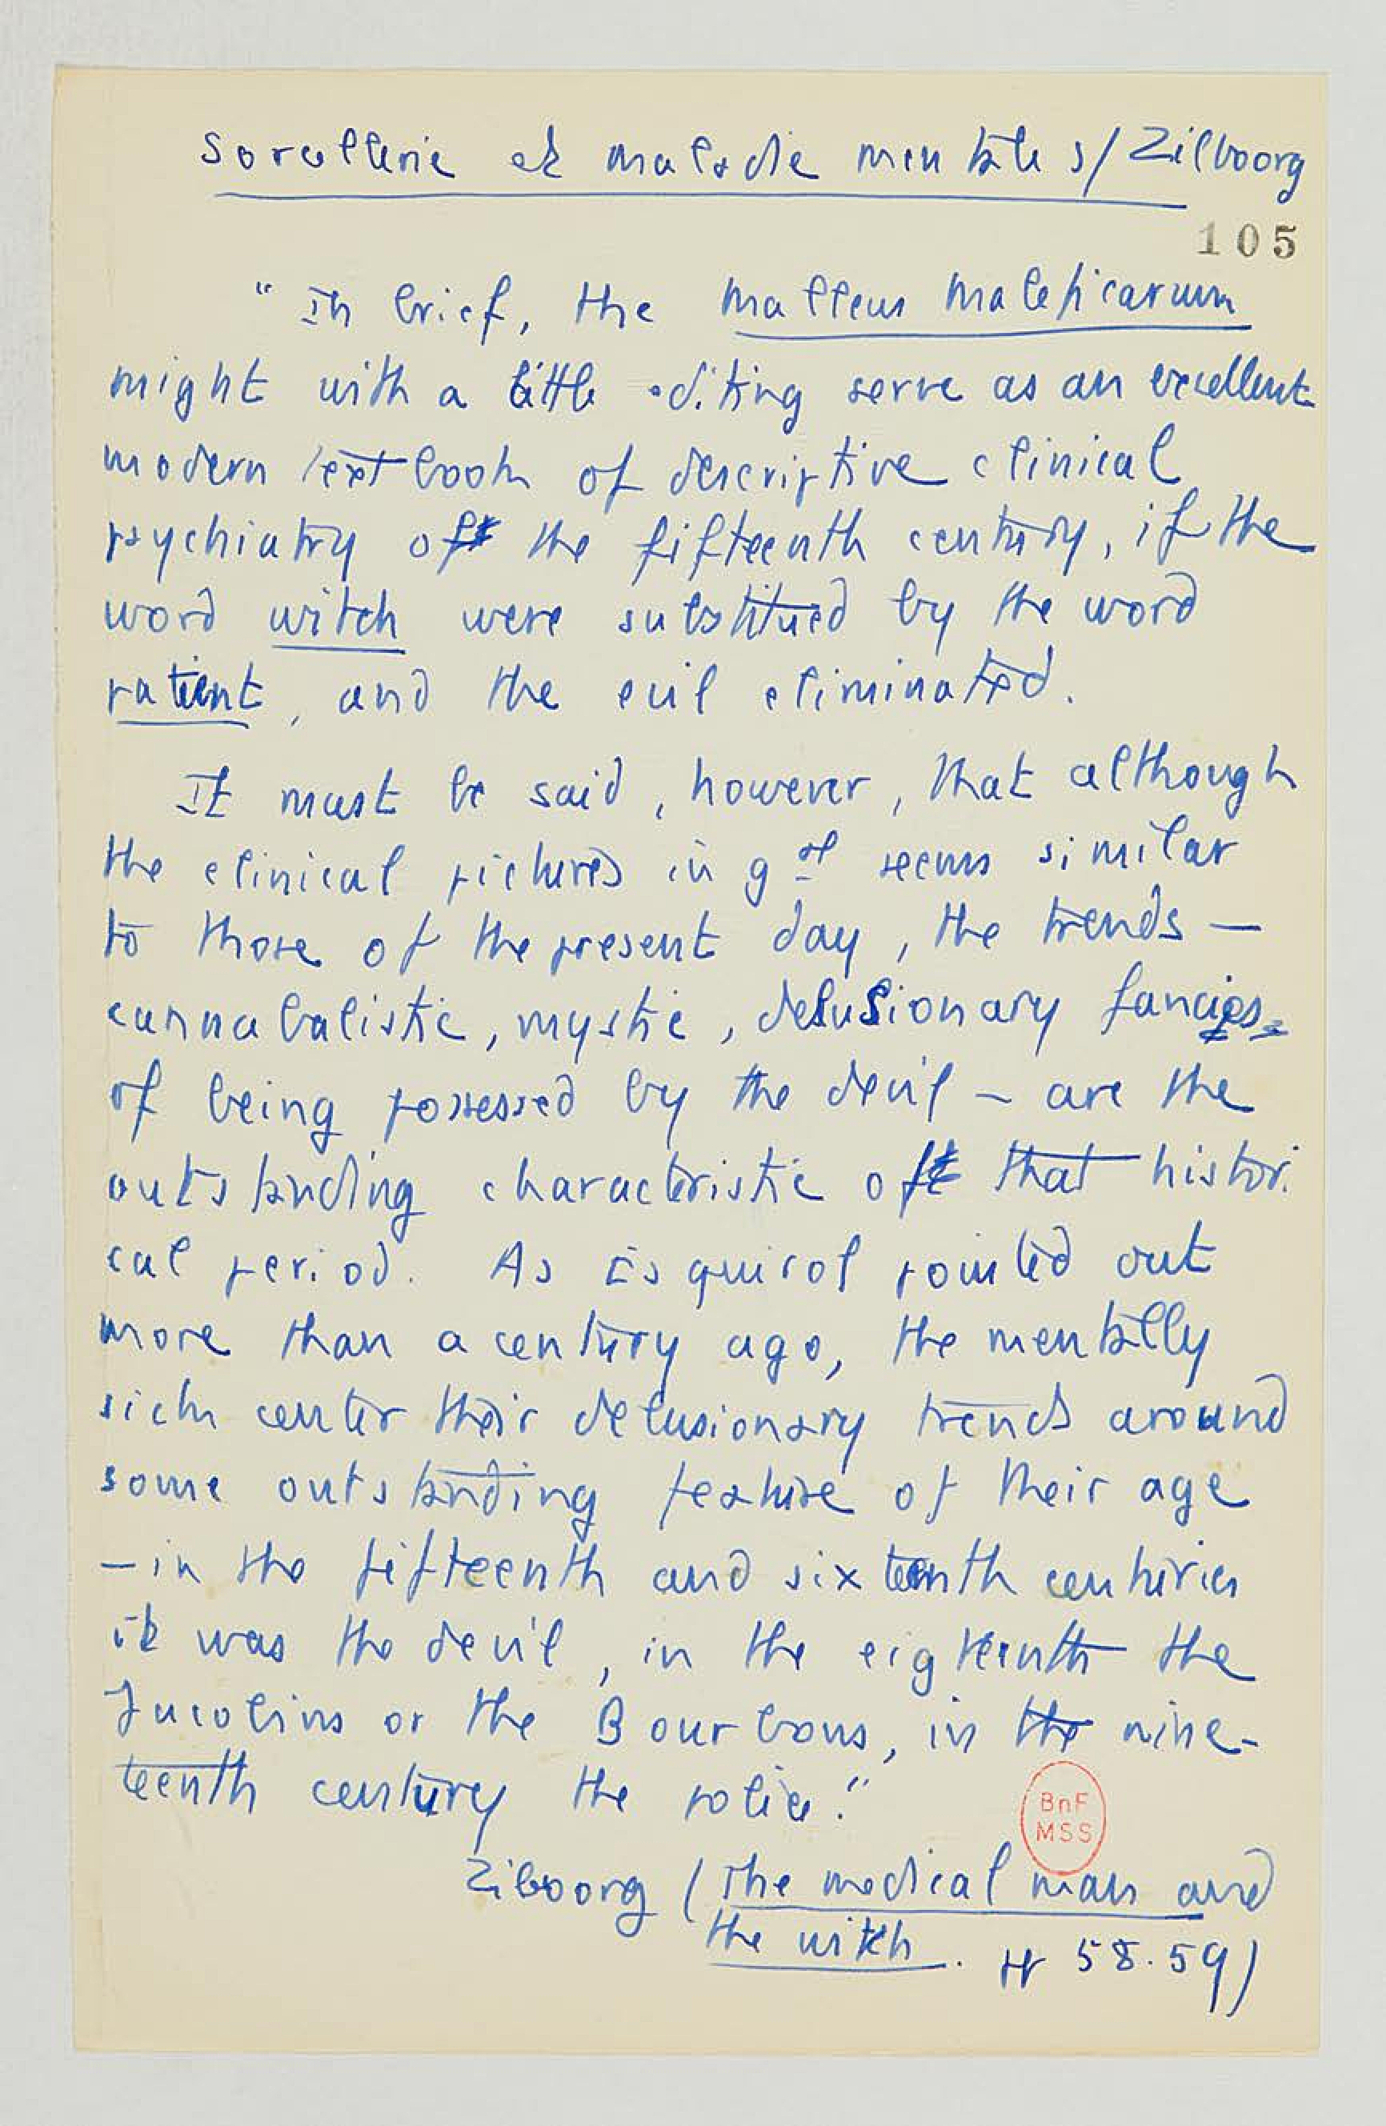 Sorcellerie et maladie mentale s/ Zilboorg
105
" In brief, the Malleus Maleficarum
might with a little editing serve as an excellent
modern textbook of descriptive clinical
psychiatry of the fifteenth century, if the
word witch were substitued by the word
patient, and the evil eliminated.
It must be said, however, that although
the clinical pictures in gal seems similar
to those of the present day, the trends —
cannabalistic, mystic, delusionary fancies
of being possessed by the devil — are the
outstanding characteristic of that histori
cal period. As Esquirol pointed out
more than a century ago, the mentally
sick center their delusionary trends around
some outstanding feature of their age
— in the fifteenth and sixteenth centuries
it was the devil, in the eigteenth the
Jacobins or the Bourbons, in the nine-
teenth century the police."
BnF
MSS
Zilboorg (The medical man and
the witch. pp 58.59)